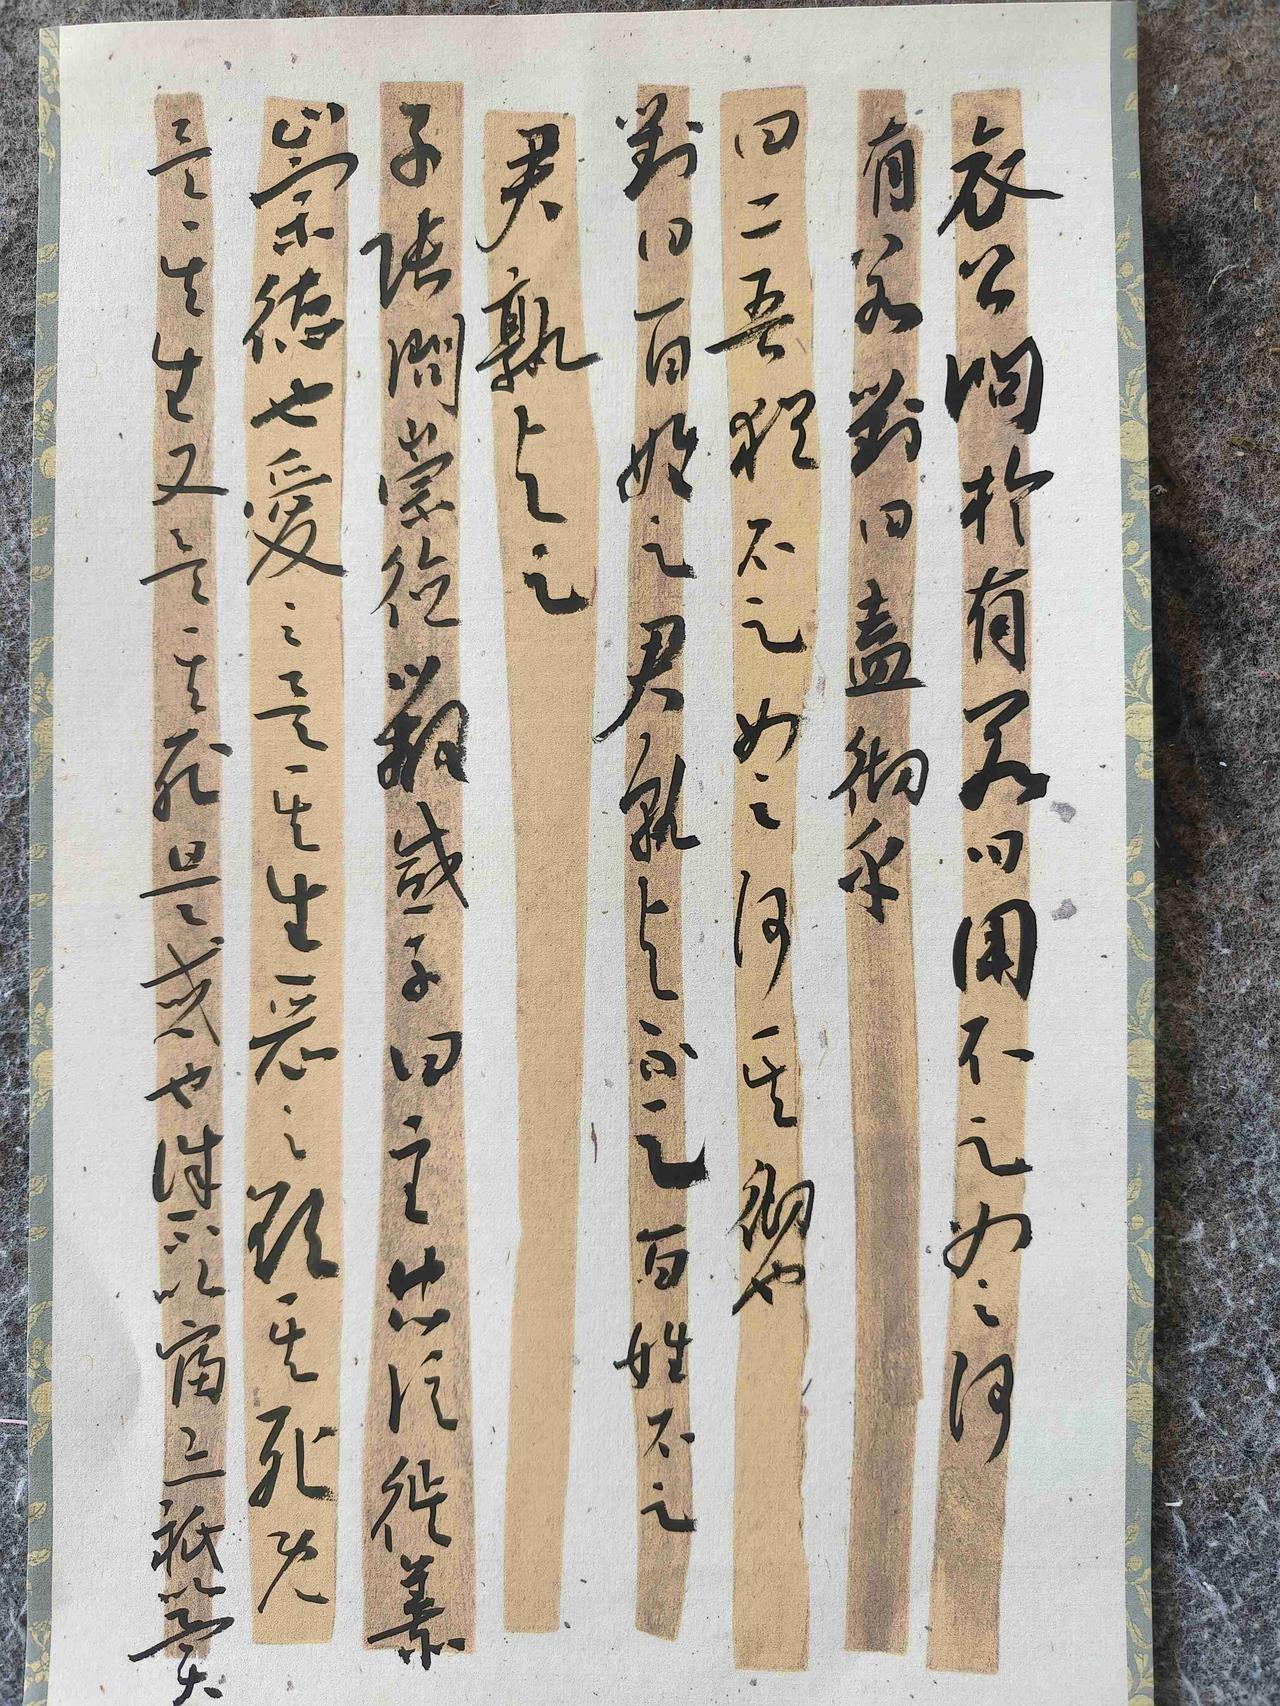 哀公問於有若曰用不足如之何
有若對曰盍徹乎
曰二吾猶不足如之何其徹也
對曰百姓足君孰與不足百姓不足
君孰與足
子張問崇德辨惑子曰主忠信徙義
崇德也愛之欲其生惡之欲其死既
欲其生又欲其死是惑也誠不以富亦祗以異